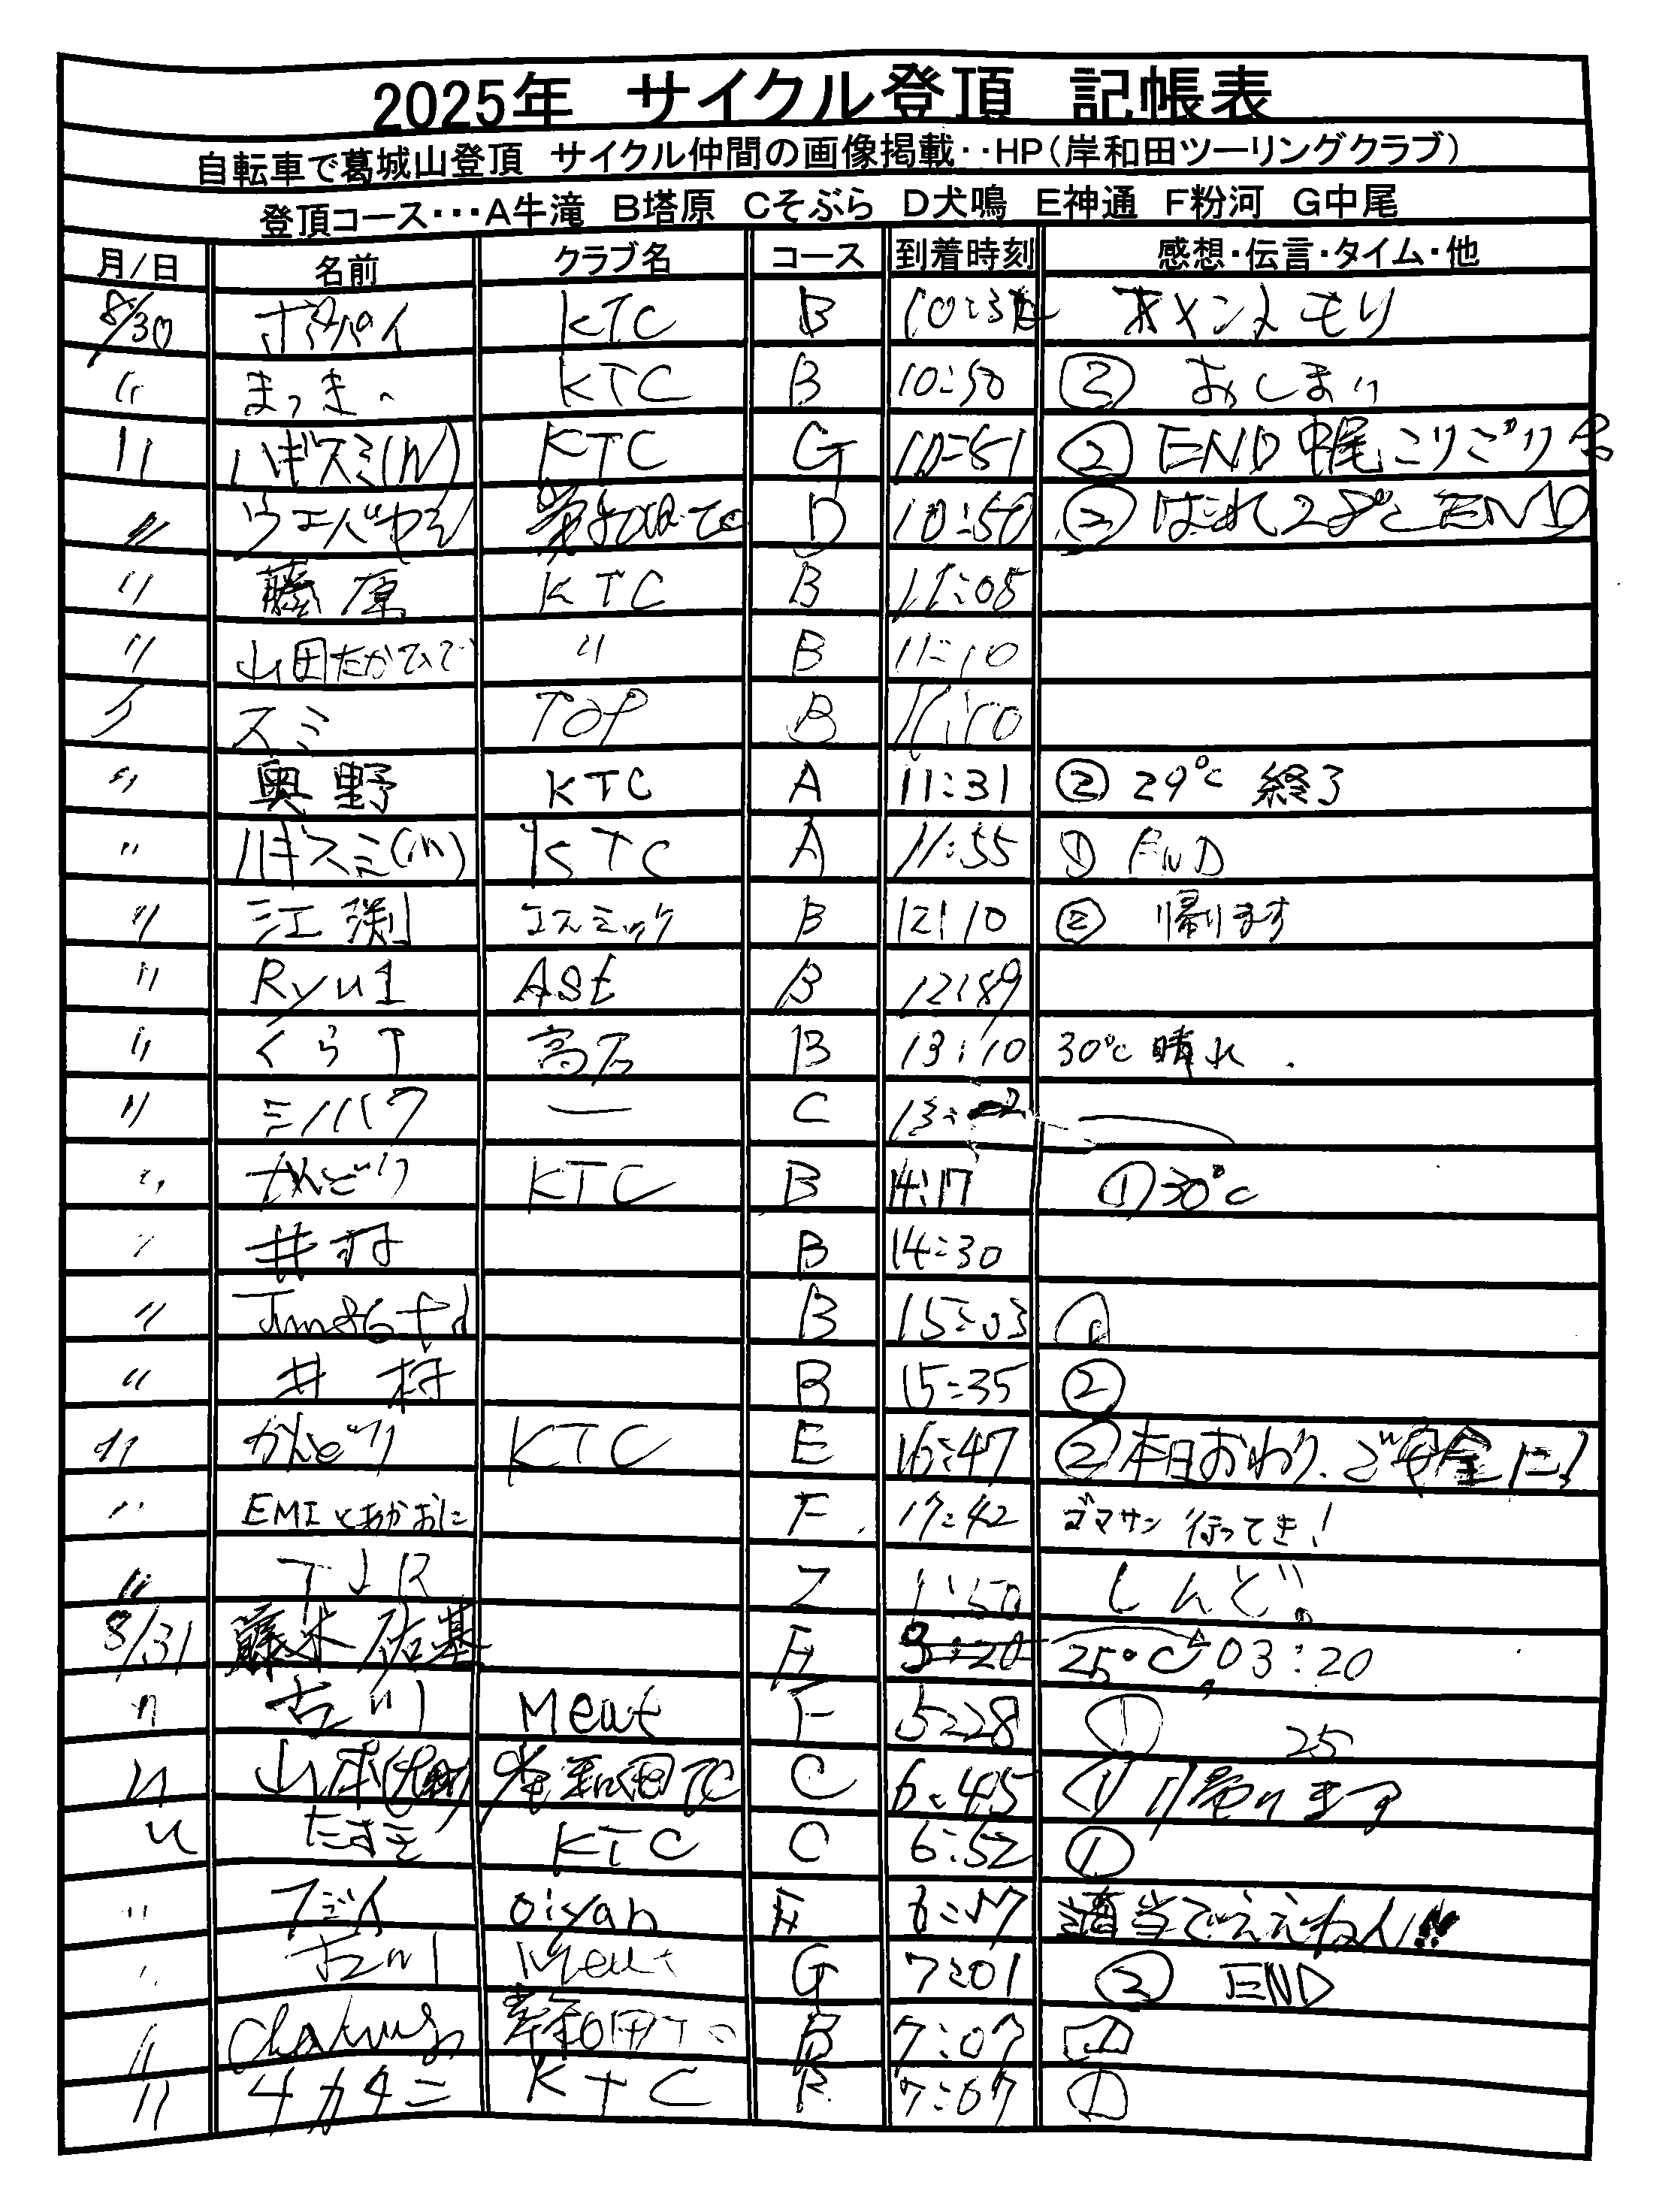 2025年 サイクル登頂 記帳表
自転車で葛城山登頂 サイクル仲間の画像掲載‥HP(岸和田ツーリングクラブ)
登頂コース‥・A牛滝 B塔原 Cそぶら D犬鳴 E神通 F粉河 G中尾
月/日 名前 クラブ名 コース 到着時刻 感想・伝言・タイム・他
8/30 ポパイ KTC B
〃 まっきー KTC B 10:50 ② おしまい
〃 ハギスミ(N) KTC G 10:51 ② END 中尾こりごり
〃 D 10:50 ② はれ 28℃ END
〃 藤原 KTC B 11:05
〃 山田たかひで 〃 B 11:10
〃 スミ TOP B 11:10
〃 奥野 KTC A 11:31 ② 29℃ 終了
〃 ハギスミ(m) KTC A 11:55 ① END
〃 江渕 コスミック B 12:10 ② 帰ります
〃 Ryu1 B
〃 くら 高石 B 13:10 30℃ 晴れ.
〃 ミノハラ ― C 13:
〃 かんどり KTC B 14:17 ① 30℃
〃 井村 B 14:30
〃 B 15:03 ①
〃 井村 B 15:35 ②
〃 かんどり KTC E 16:47 ② 本日おわり、ご安全に!
〃 EMIとあかおに F. 17:42 ゴマサン 行ってき!
〃 TJR Z 1:50 しんど。
8/31 藤木 佑基 3:20 25℃ 03:20
〃 古川 Meut F 5:28 ① 25
〃 山本 岸和田TC C 6:45 ① 帰ります
〃 たすき KTC C 6:52 ①
〃 フジイ oiyan 6:57 適当でええねん!!
〃 古川 Meut G 7:01 ② END
〃 岸和田TC B 7:07 ①
〃 ナカタニ KTC 7:07 ①